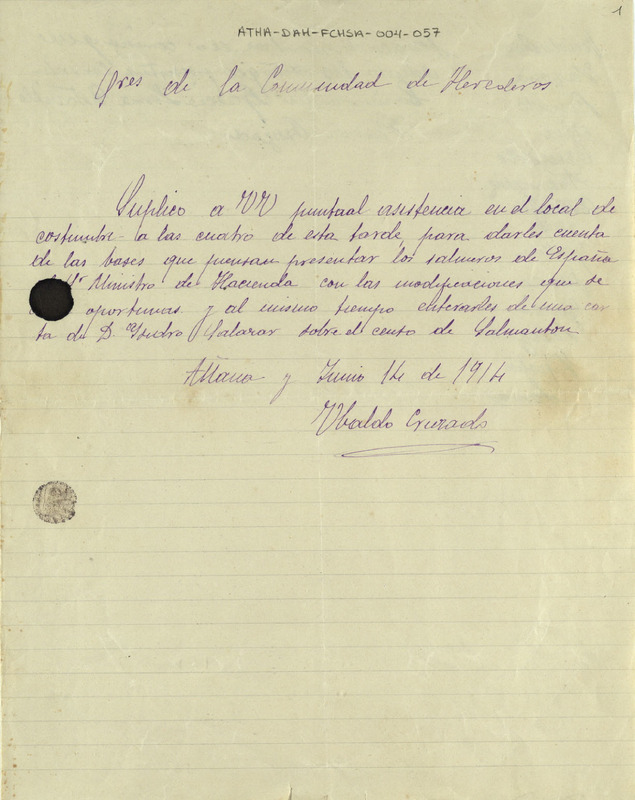 1
ATHA-DAH-FCHSA-004-057
Sres de la Comunidad de Herederos
Suplico a VV puntual asistencia en el local de
costumbre a las cuatro de esta tarde, para darles cuenta
de las bases que piensan presentar los salineros de España
Sr Ministro de Hacienda con las modificaciones que se
oportunas y al mismo tiempo enterarles de una car
ta de D. Ysidro Salazar sobre el censo de Salmanton
Añana y Junio 14 de 1914
Ubaldo Cruzado